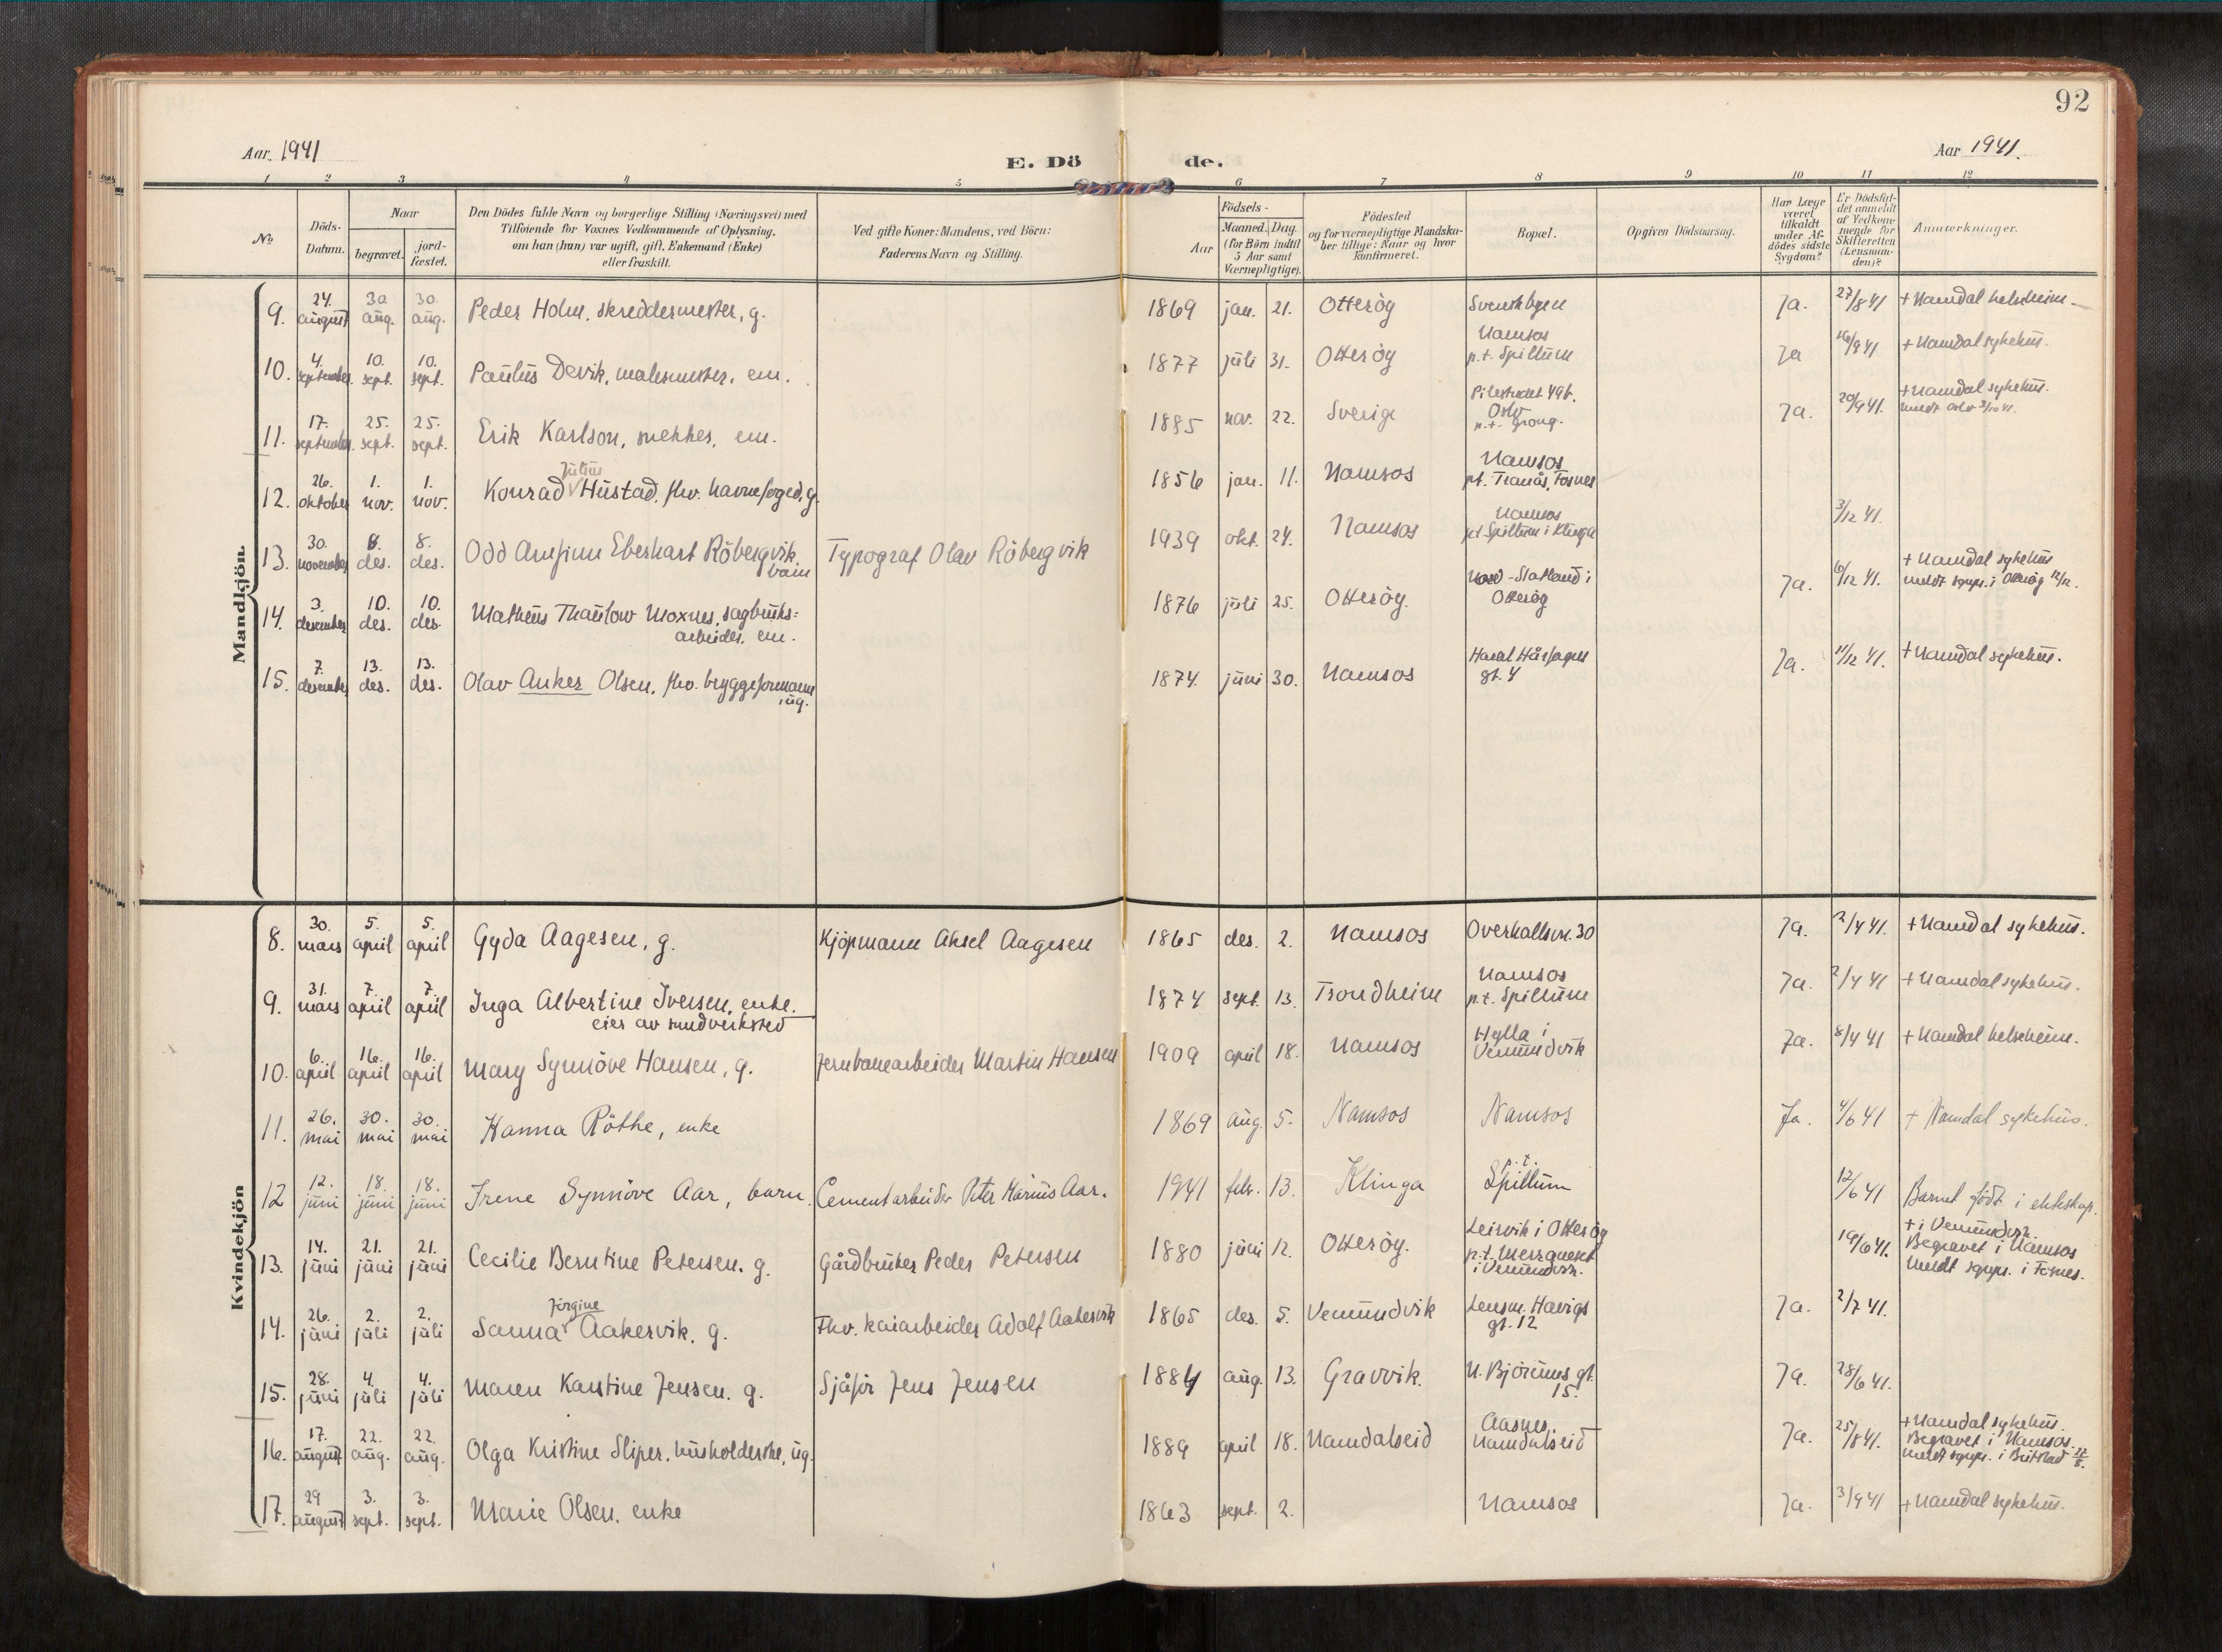 92
Aar 1941
E. Döde.
Aar 1941.
1 2 3 4 5 6 7 8 9 10 11 12
No
Döds-Datum.
Naar
begravet.
jordfæstet.
Den Dödes fulde Navn og borgerlige Stilling (Næringsvei) med
Tilföiende for Voxnes Vedkommende af Oplysning,
om han (hun) var ugift, gift, Enkemand (Enke)
eller fraskilt.
Ved gifte Koner: Mandens, ved Börn:
Faderens Navn og Stilling.
Födsels-
Aar
Maaned. Dag.
(for Börn indtil
5 Aar samt
Værnepligtige).
Födested
og for værnepligtige Mandskaber tillige: Naar og hvor
konfirmeret.
Bopæl.
Opgiven Dödsaarsag.
Har Læge
været
tilkaldt
under Afdödes sidste
Sygdom?
Er Dödsfaldet anmeldt
af Vedkommende for
Skifteretten
(Lensmanden)?
Anmærkninger.
Mandkjön.
9. 24. august 30. aug. 30. aug. Peder Holm, skreddermester, g. 1869 jan. 21. Otterøy Svenskbyen Ja. 27/8 41 + Namdal helseheim
10. 4. september 10. sept. 10. sept. Paulus Devik, malermester, em. 1877 juli 31. Otterøy Namsos p.t. Spillum Ja 16/9 41 + Namdal sykehus.
11. 17. september 25. sept. 25. sept. Erik Karlson, snekker, em. 1885 nov. 22. Sverige Pilestredet 49b. Oslo p.t. Grong. Ja. 20/9 41. + Namdal sykehus. meldt Oslo 2/10 41.
12. 26. oktober 1. nov. 1. nov. Konrad Julius Hustad, fhv. havnefoged, g. 1856 jan. 11. Namsos Namsos pt. Tranås, Fosnes
13. 30. november 8. des. 8. des. Odd Arnfinn Eberhart Röbergvik, barn Typograf Olav Röbergvik 1939 okt. 24. Namsos Namsos pt Spillum i Klinga 3/12 41.
14. 3. desember 10. des. 10. des. Matheus Thaulow Moxnes, sagbruks-
arbeider, em. 1876 juli 25. Otterøy. Nord-Statland i Otterøy Ja. 6/12 41. + Namdal sykehus meldt sgpr. i Otterøy 12/12.
15. 7. desember 13. des. 13. des. Olav Anker Olsen, fhv. bryggeformann, ug. 1874 juni 30. Namsos Harald Hårfagres gt. 4 Ja. 11/12 41. + Namdal sykehus.
Kvindekjön
8. 30. mars 5. april 5. april Gyda Aagesen, g. Kjöpmann Aksel Aagesen 1865 des. 2. Namsos Overhallsvn. 30 Ja. 2/4 41. + Namdal sykehus.
9. 31. mars 7. april 7. april Inga Albertine Iversen, enke.
eier av smedverksted 1874 sept. 13. Trondheim Namsos p.t. Spillum Ja. 2/4 41 + Namdal sykehus.
10. 6. april 16. april 16. april Mary Synnöve Hansen, g. Jernbanearbeider Martin Hansen 1909 april 18. Namsos Hylla i Vemundvik Ja. 8/4 41 + Namdal helseheim.
11. 26. mai 30. mai 30. mai Hanna Röthe, enke 1869 aug. 5. Namsos Namsos Ja. 4/6 41 + Namdal sykehus.
12 12. juni 18. juni 18. juni Irene Synnöve Aar, barn. Cementarbeider Peter Marius Aar. 1941 febr. 13. Klinga p.t. Spillum 12/6 41 Barnet født i ekteskap.
13. 14. juni 21. juni 21. juni Cecilie Berntine Petersen, g. Gårdbruker Peder Petersen 1880 juni 12. Otterøy. Leirvik i Otterøy p.t. i Vemundvik. 19/6 41. + i Vemundvik. Begravet i Namsos meldt sgpr. i Fosnes.
14. 26. juni 2. juli 2. juli Sanna Jörgine Aakervik, g. Fhv. kaiarbeider Adolf Aakervik 1865 des. 5. Vemundvik Lensm. Havigs gt. 12 Ja. 2/7 41.
15. 28. juni 4. juli 4. juli Maren Karstine Jensen, g. Sjåfør Jens Jensen 1884 aug. 13. Gravvik. N. Bjørums gt. 15. Ja. 28/6 41.
16. 17. august 22. aug. 22. aug. Olga Kristine Sliper, husholderske, ug. 1889 april 18. Namdalseid Aasnes, Namdalseid Ja. 25/8 41. + Namdal sykehus. Begravet i Namsos. meldt sgpr. i Beitstad
17. 29 august 3. sept. 3. sept. Marie Olsen, enke 1863 sept. 2. Namsos Ja. 3/9 41 + Namdal sykehus.